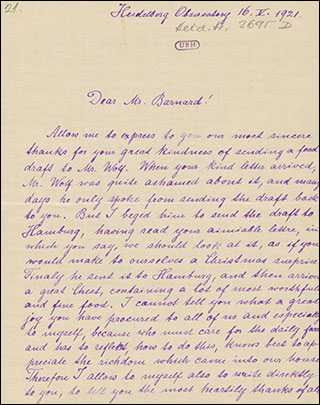 21.
Heidelberg Observatory 16. V. 1921.
Held. Hs. 3695 D
UBH
Dear Mr. Barnard!
Allow me to express to you our most sincere
thanks for your great kindness of sending a food
draft to Mr. Wolf. When your kind letter arrived,
Mr. Wolf was quite ashamed about it, and many
days he only spoke from sending the draft back
to you. But I beged him to send the draft to
Hamburg, having read your aimiable lettre, in
which you say, we should look at it, as if you
would make to ourselves a Christmas surprise
Finaly he sent it to Hamburg, and then arrived
a great Chest, containing a lot of most worshful
and fine food. I cannot tell you what a great
joy you have procured to all of us and especialy
to myself, because who must care for the daily fare
and has to reflect how to do this, knows best to ap-
preciate the richdom which came into our house
Therefore I allow to myself also to write directly
to you, to tell you the most heartily thanks of all